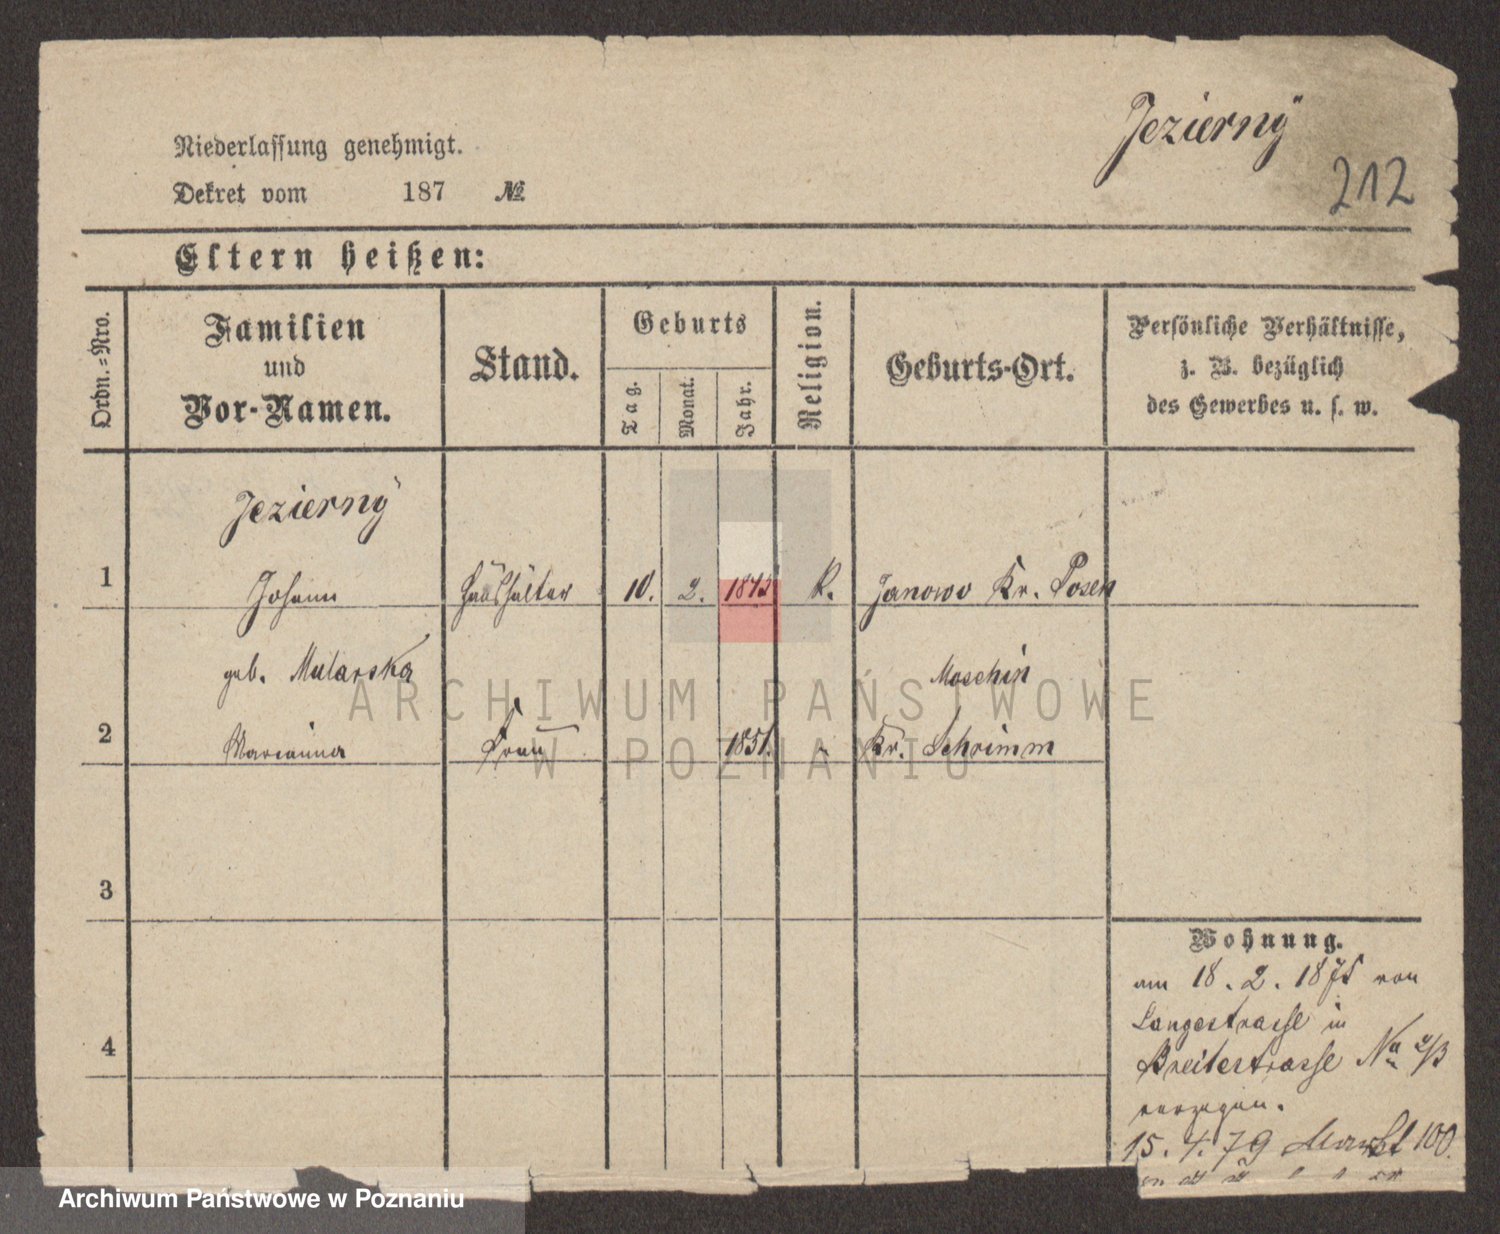 Jezierny
212
Niederlassung genehmigt.
Dekret vom 187 №
Eltern heißen:
Ordn.-Nro.
Familien
und
Vor-Namen.
Stand.
Geburts
Tag.
Monat.
Jahr.
Religion.
Geburts-Ort.
Persönliche Verhältnisse,
z. B. bezüglich
des Gewerbes u. s. w.
Jezierny
1 Johann Haushälter 10. 2. K. Janowo Kr. Posen
geb. Mularska Moschin
2 Marianna Frau 1851. Kr. Schrimm
ARCHIWUM PAŃSTWOWE
W POZNANIU
3
4
Wohnung.
am 18. 2. 1875 von
Langestrasse in
Breitestrasse No
verzogen.
15. 4. 79 Markt 100.
Archiwum Państwowe w Poznaniu